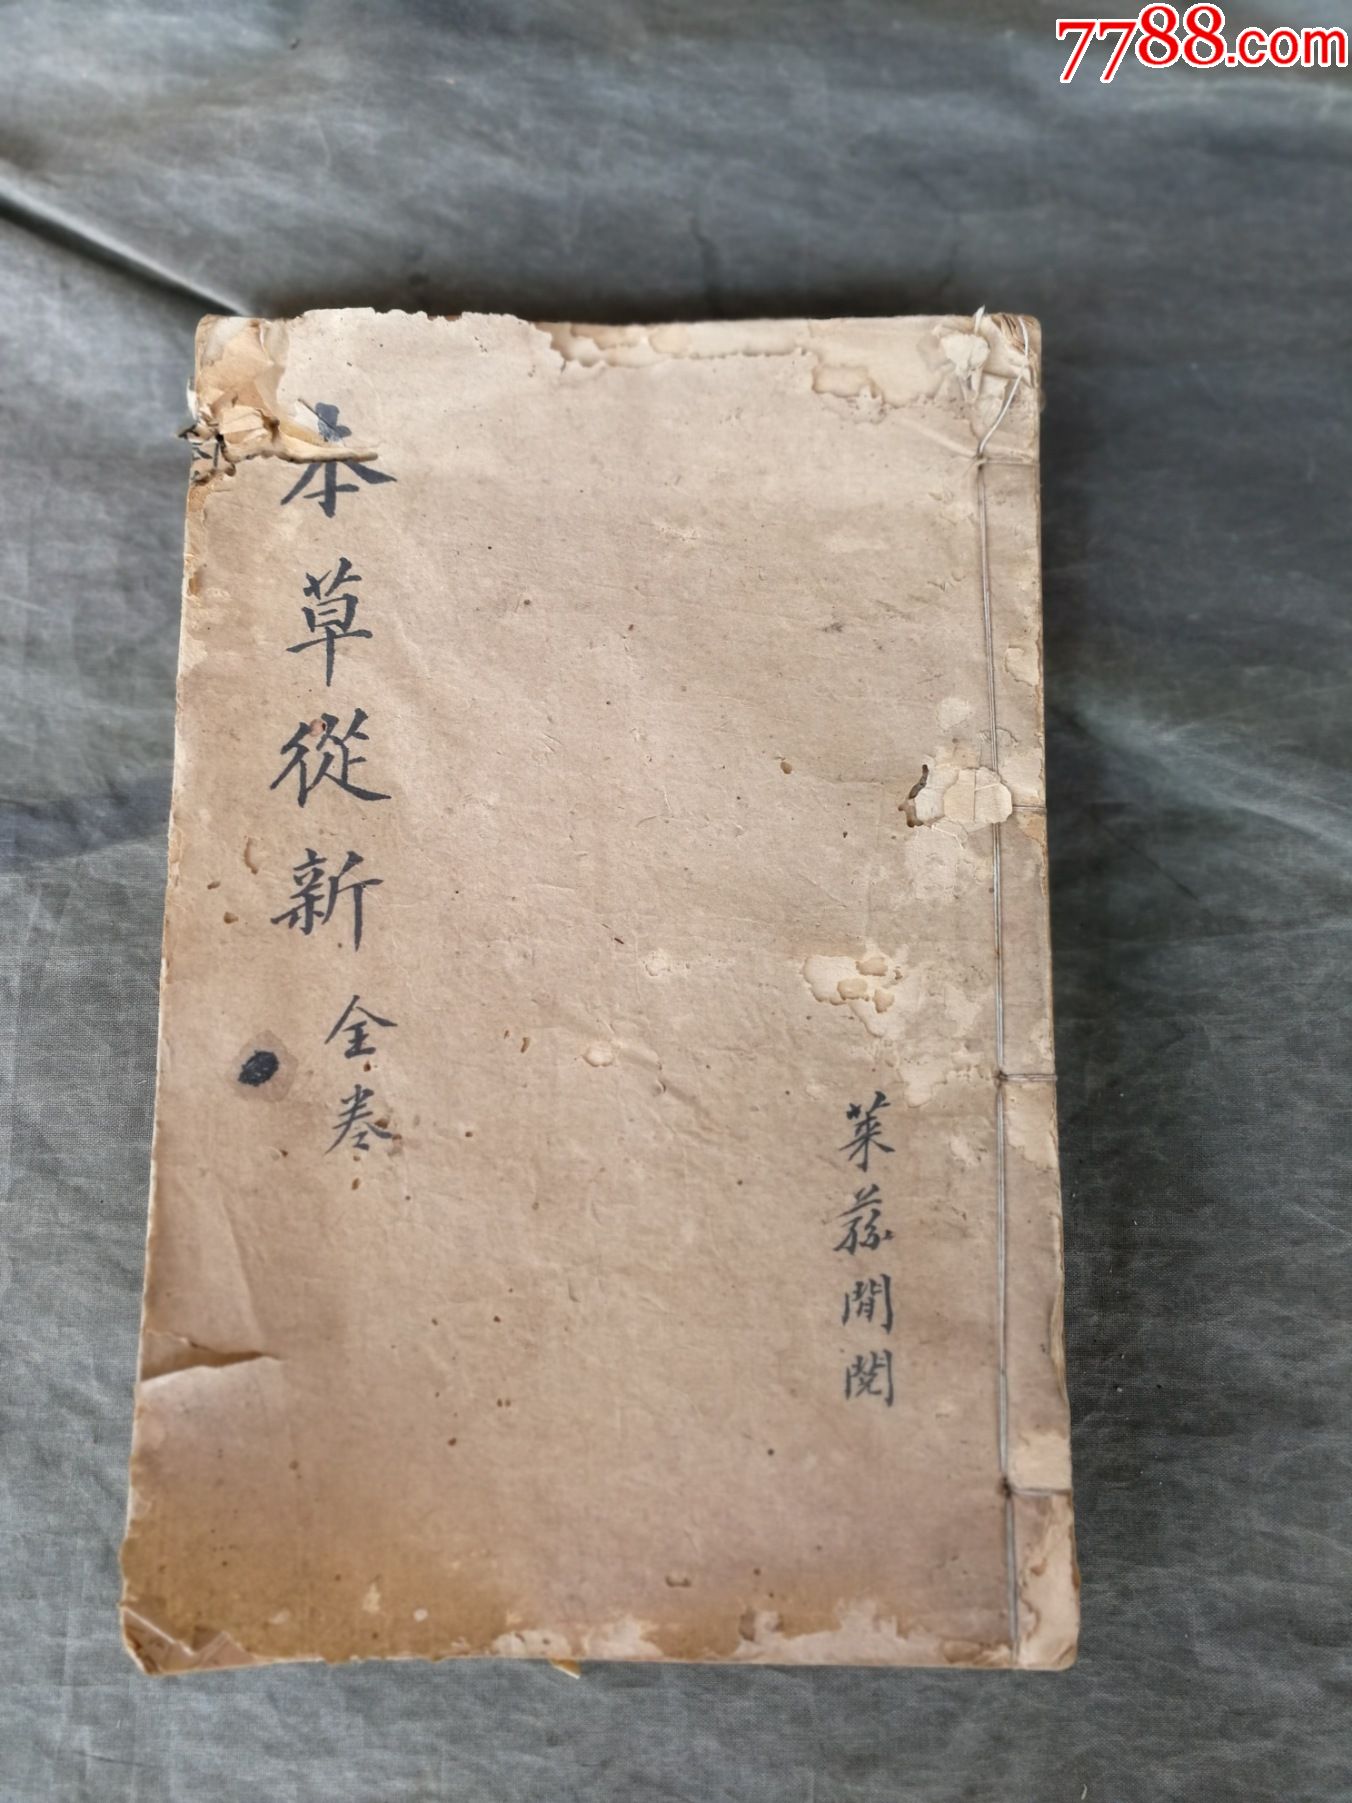 7788.com
本草從新 全卷
萊蓀閒閱